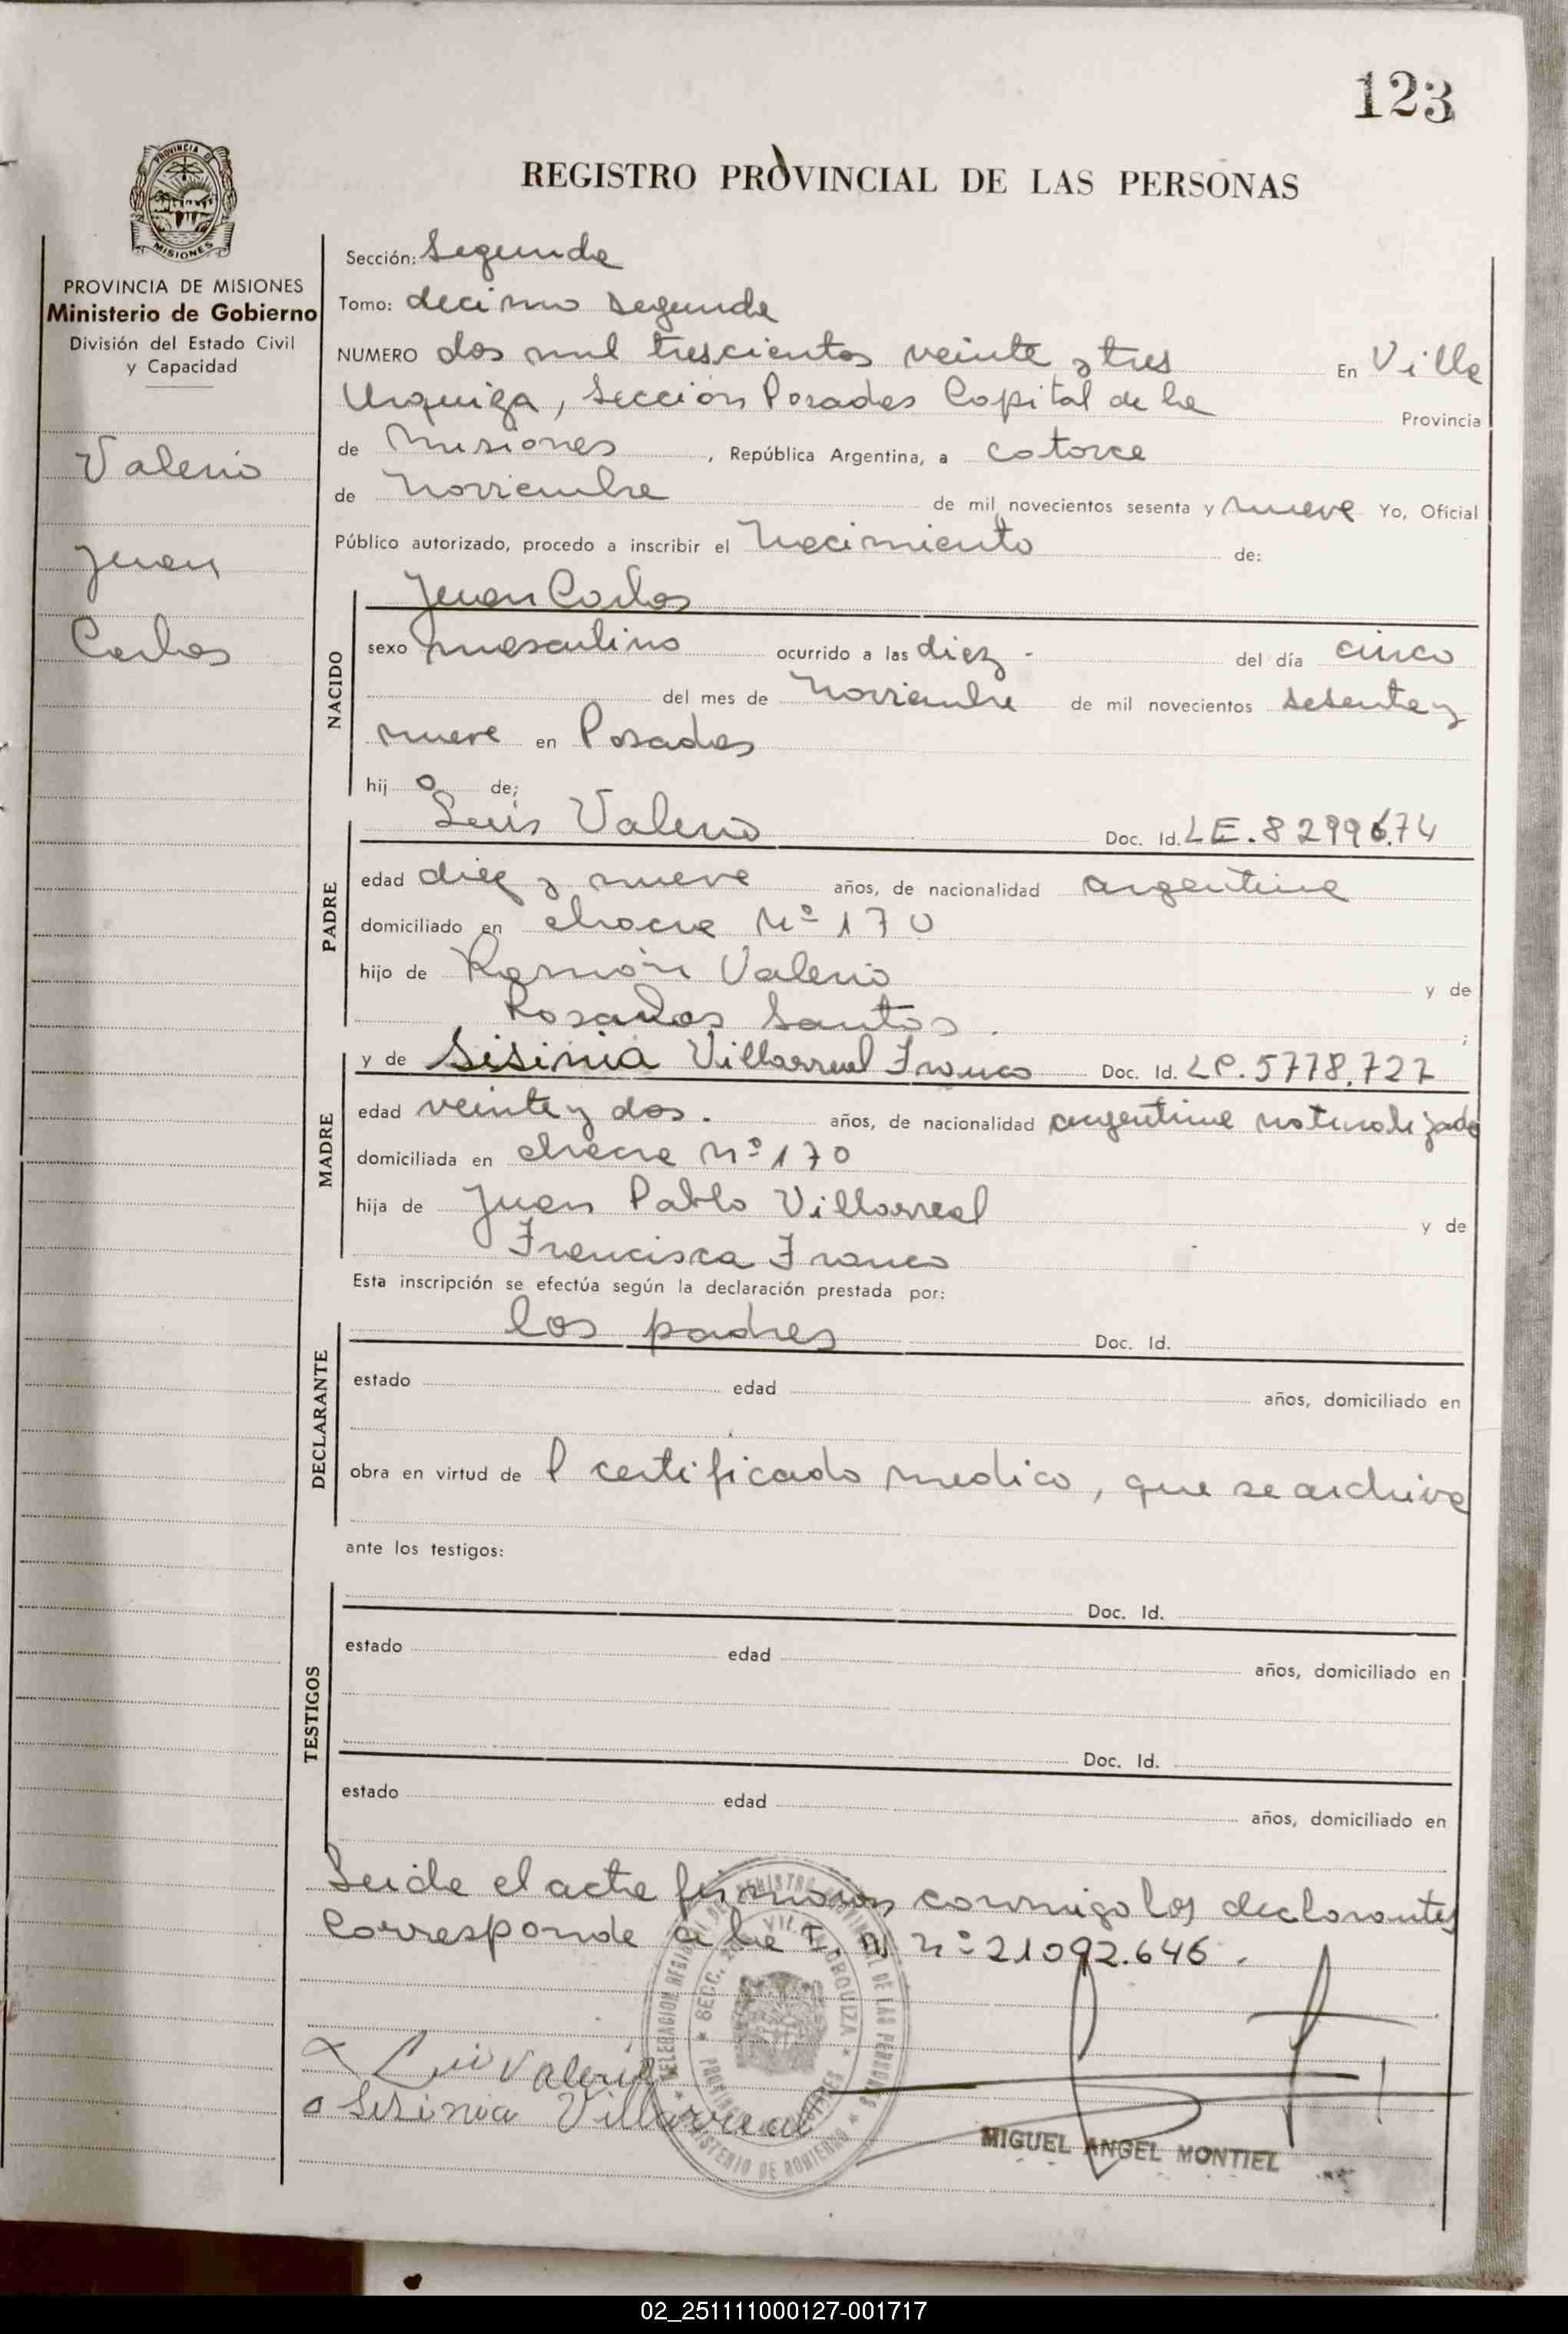 123
REGISTRO PROVINCIAL DE LAS PERSONAS
PROVINCIA DE MISIONES
PROVINCIA DE MISIONES
Ministerio de Gobierno
División del Estado Civil
y Capacidad
Valerio
Juan
Carlos
Sección: Segunda
Tomo: decimo segunda
NUMERO dos mil trescientos veinte y tres En Villa
Urquiza, Sección Posadas Capital de la Provincia
de Misiones, República Argentina, a catorce
de Noviembre de mil novecientos sesenta y nueve Yo, Oficial
Público autorizado, procedo a inscribir el Nacimiento de:
NACIDO
Juan Carlos
sexo masculino ocurrido a las diez - del día cinco
del mes de Noviembre de mil novecientos sesenta y
nueve en Posadas
hijo de;
PADRE
Luis Valerio Doc. Id. LE. 8299674
edad diez y nueve años, de nacionalidad argentina
domiciliado en chacra Nº 170
hijo de Ramón Valerio y de
Rosados Santos.;
MADRE
y de Sisinia Villarreal Franco Doc. Id. LP. 5778.727
edad veinte y dos. años, de nacionalidad argentina naturalizada
domiciliada en chacra Nº 170
hija de Juan Pablo Villarreal y de
Francisca Franco
Esta inscripción se efectúa según la declaración prestada por:
DECLARANTE
los padres Doc. Id.
estado edad años, domiciliado en
obra en virtud de l certificado medico, que se archiva
ante los testigos:
TESTIGOS
Doc. Id.
estado edad años, domiciliado en
Doc. Id.
estado edad años, domiciliado en
Leida el acta firmaron conmigo los declarantes
Corresponde a la I. N nº 21092.646.
Luis Valerio
Sisinia Villarreal
MIGUEL ANGEL MONTIEL
02_251111000127-001717